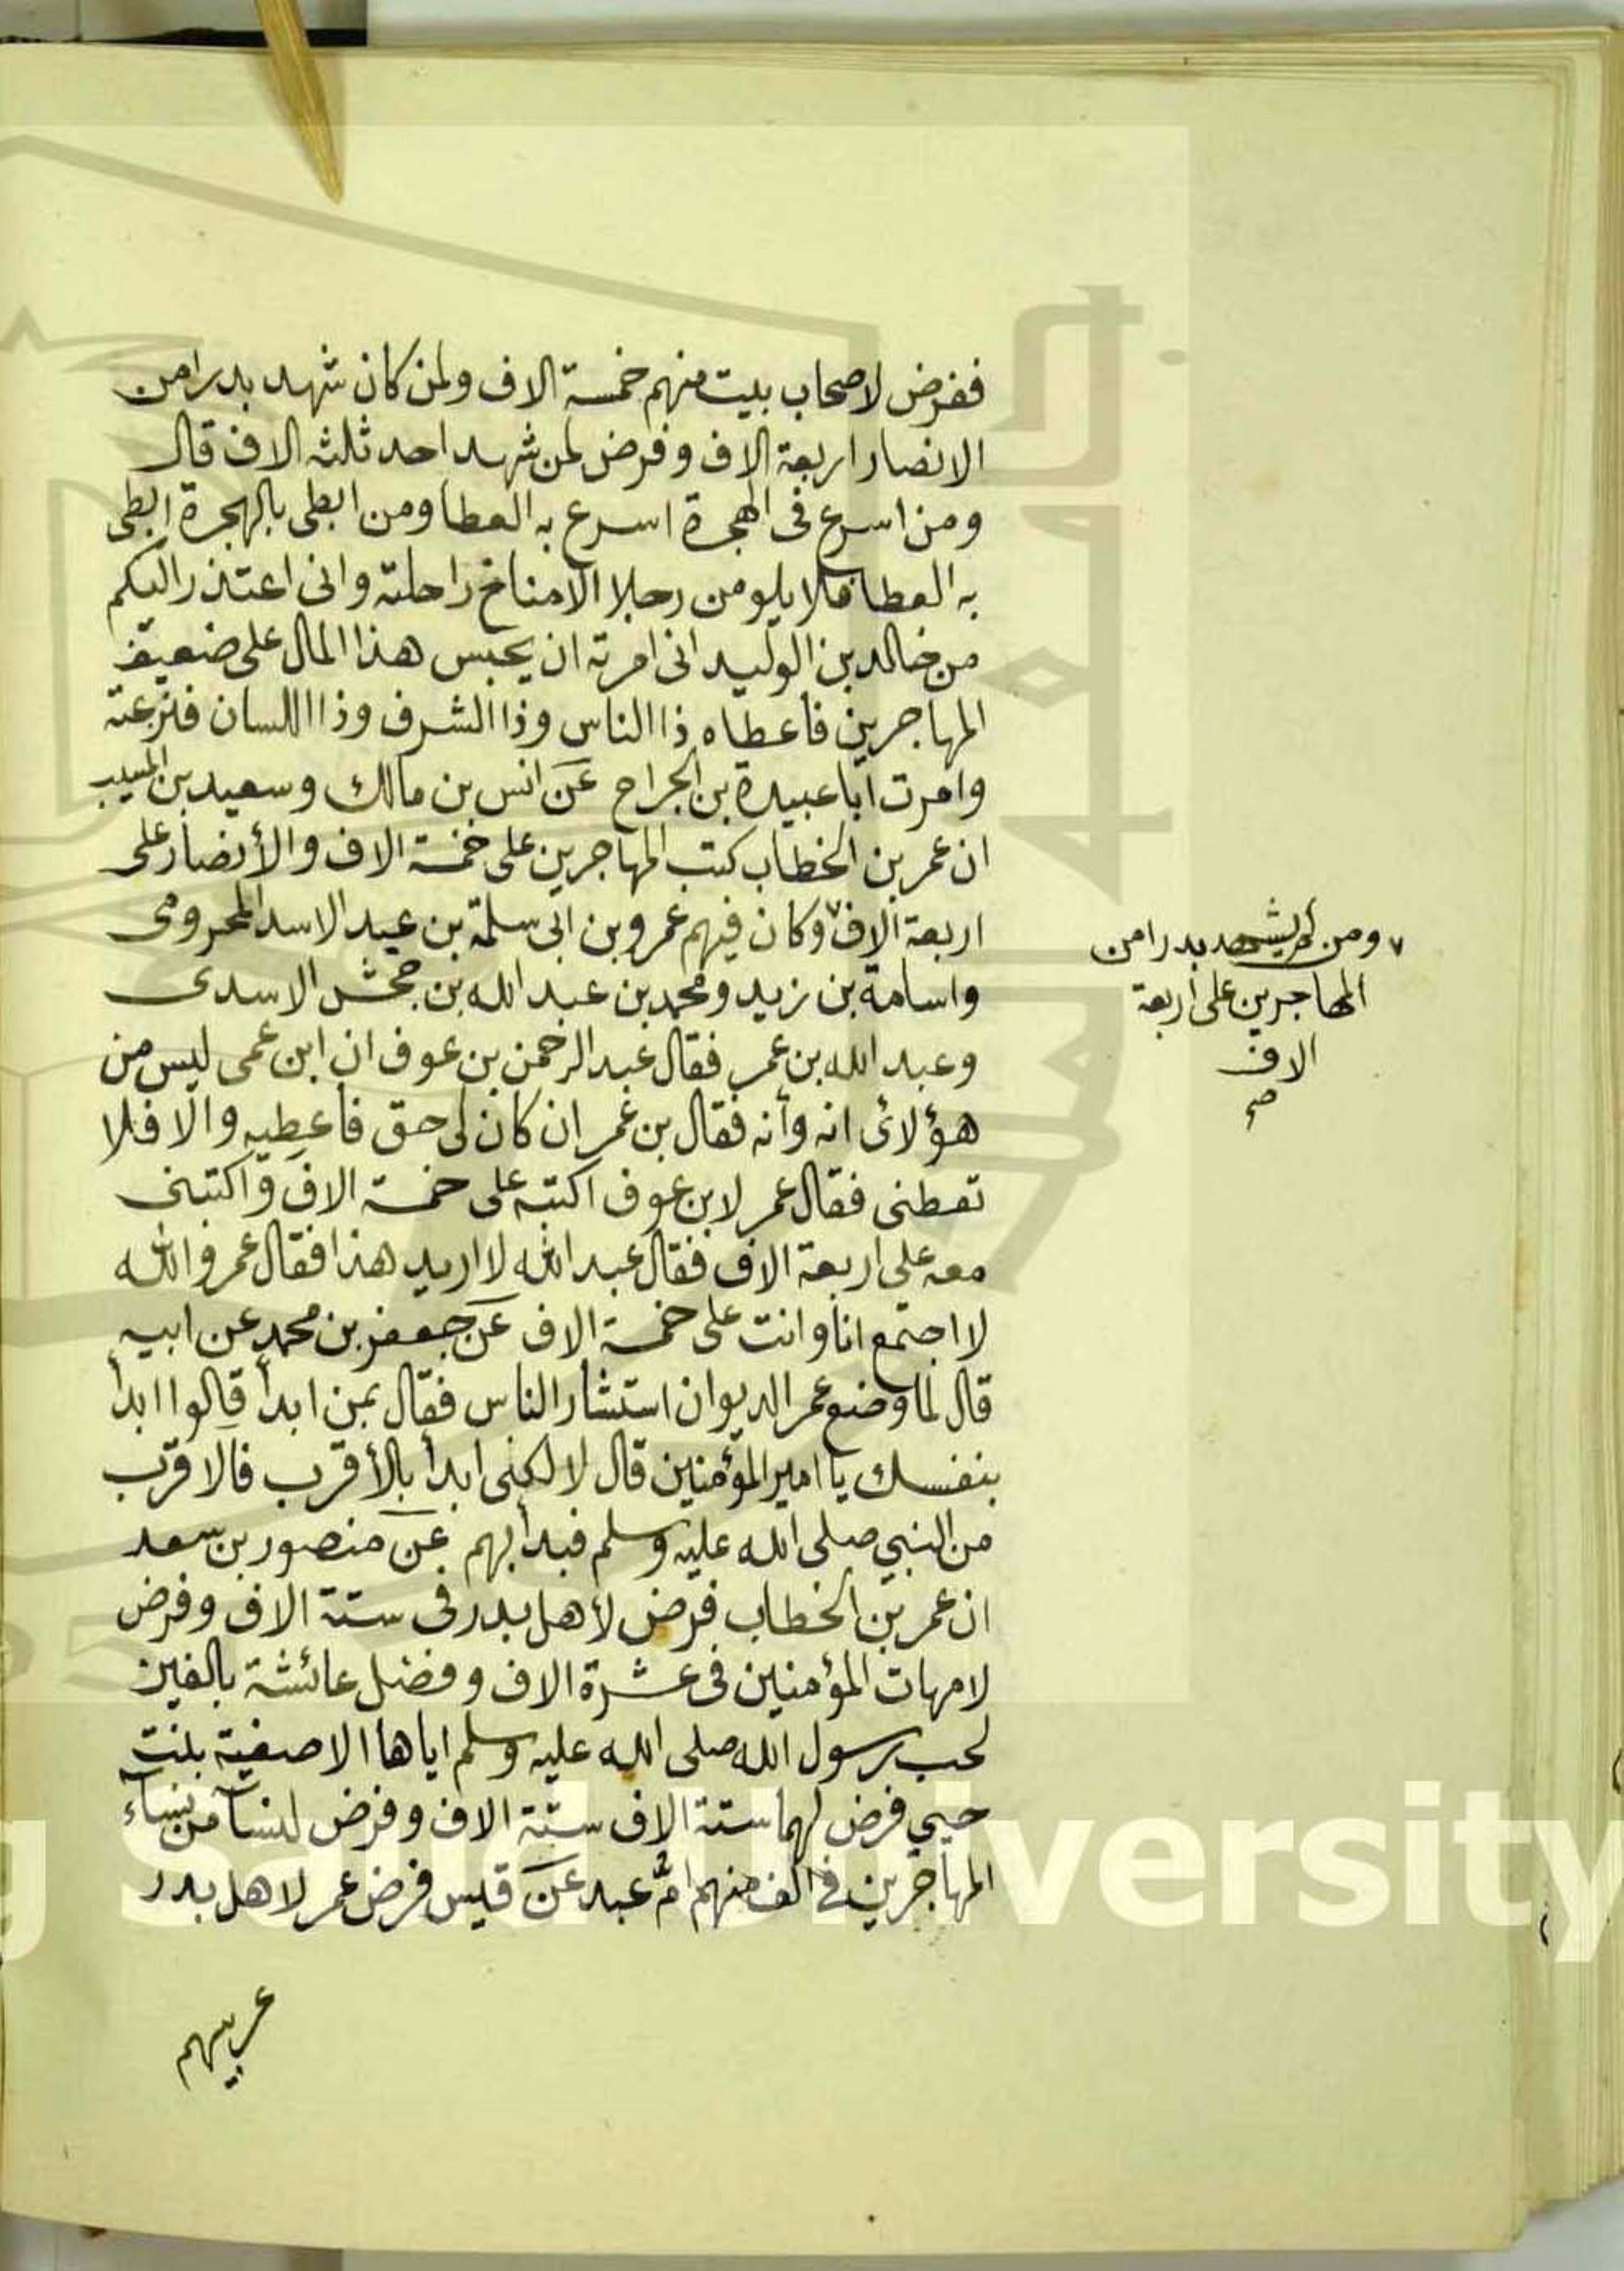 ففرض لاصحاب بيت منهم خمسة الاف ولمن كان شهد بدرا من
الانصار اربعة الاف وفرض لمن شهد احد ثلثه الاف قال
ومن اسرع فى الهجرة اسرع به العطا ومن ابطى بالهجرة ابطى
به العطا فلا يلومن رجلا الا مناخ راحلته وانى اعتذر اليكم
من خالد بن الوليد انى امرته ان يحبس هذا المال على ضعيف
المهاجرين فاعطاه ذا الناس وذا الشرف وذا اللسان فنزعته
وامرت ابا عبيدة بن الجراح عن انس بن مالك وسعيد بن المسيب
ان عمر بن الخطاب كتب المهاجرين على خمسة الاف والأنصار على
اربعة الاف ٧ وكان فيهم عمرو بن ابى سلمة بن عبد الاسد المخزومى
واسامة بن زيد ومحمد بن عبد الله بن جحش الاسدى
وعبد الله بن عمر فقال عبد الرحمن بن عوف ان ابن عمى ليس من
هؤلائ انه وأنه فقال بن عمر ان كان لى حق فاعطيه والا فلا
تعطنى فقال عمر لابن عوف اكتبه على خمسة الاف واكتبنى
معه على اربعة الاف فقال عبد الله لا اريد هذا فقال عمر والله
لا اجتمع انا وانت على خمسة الاف عن جعفر بن محمد عن ابيه
قال لما وضع عمر الديوان استشار الناس فقال بمن ابدأ قالوا ابدأ
بنفسك يا امير المؤمنين قال لا لكنى ابدأ بالأقرب فالاقرب
من النبي صلى الله عليه وسلم فبدأ بهم عن منصور بن سعد
ان عمر بن الخطاب فرض لأهل بدر فى ستة الاف وفرض
لامهات المؤمنين فى عشرة الاف وفضل عائشة بالفين
لحب رسول الله صلى الله عليه وسلم اياها الا صفية بنت
حيي فرض لهما ستة الاف ستة الاف وفرض لنسآ من نسآء
المهاجرين فى الف منهم امّ عبد عن قيس فرض عمر لاهل بدر
عربيهم
٧ ومن لم يشهد بدرا من
المهاجرين على اربعة
الاف
صح
King Saud University